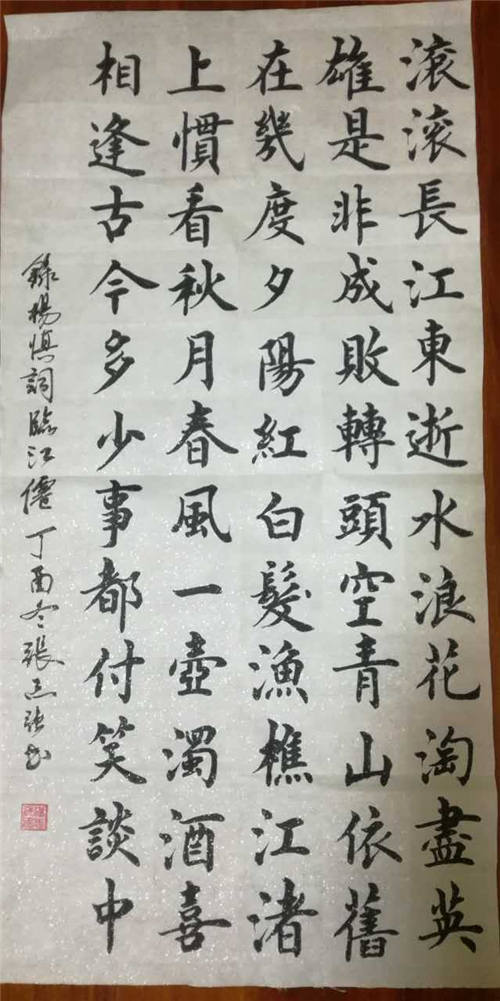 滚滚長江東逝水浪花淘盡英
雄是非成敗轉頭空青山依舊
在幾度夕陽紅白髮漁樵江渚
上慣看秋月春風一壺濁酒喜
相逢古今多少事都付笑談中
錄楊慎詞臨江僊丁酉冬張